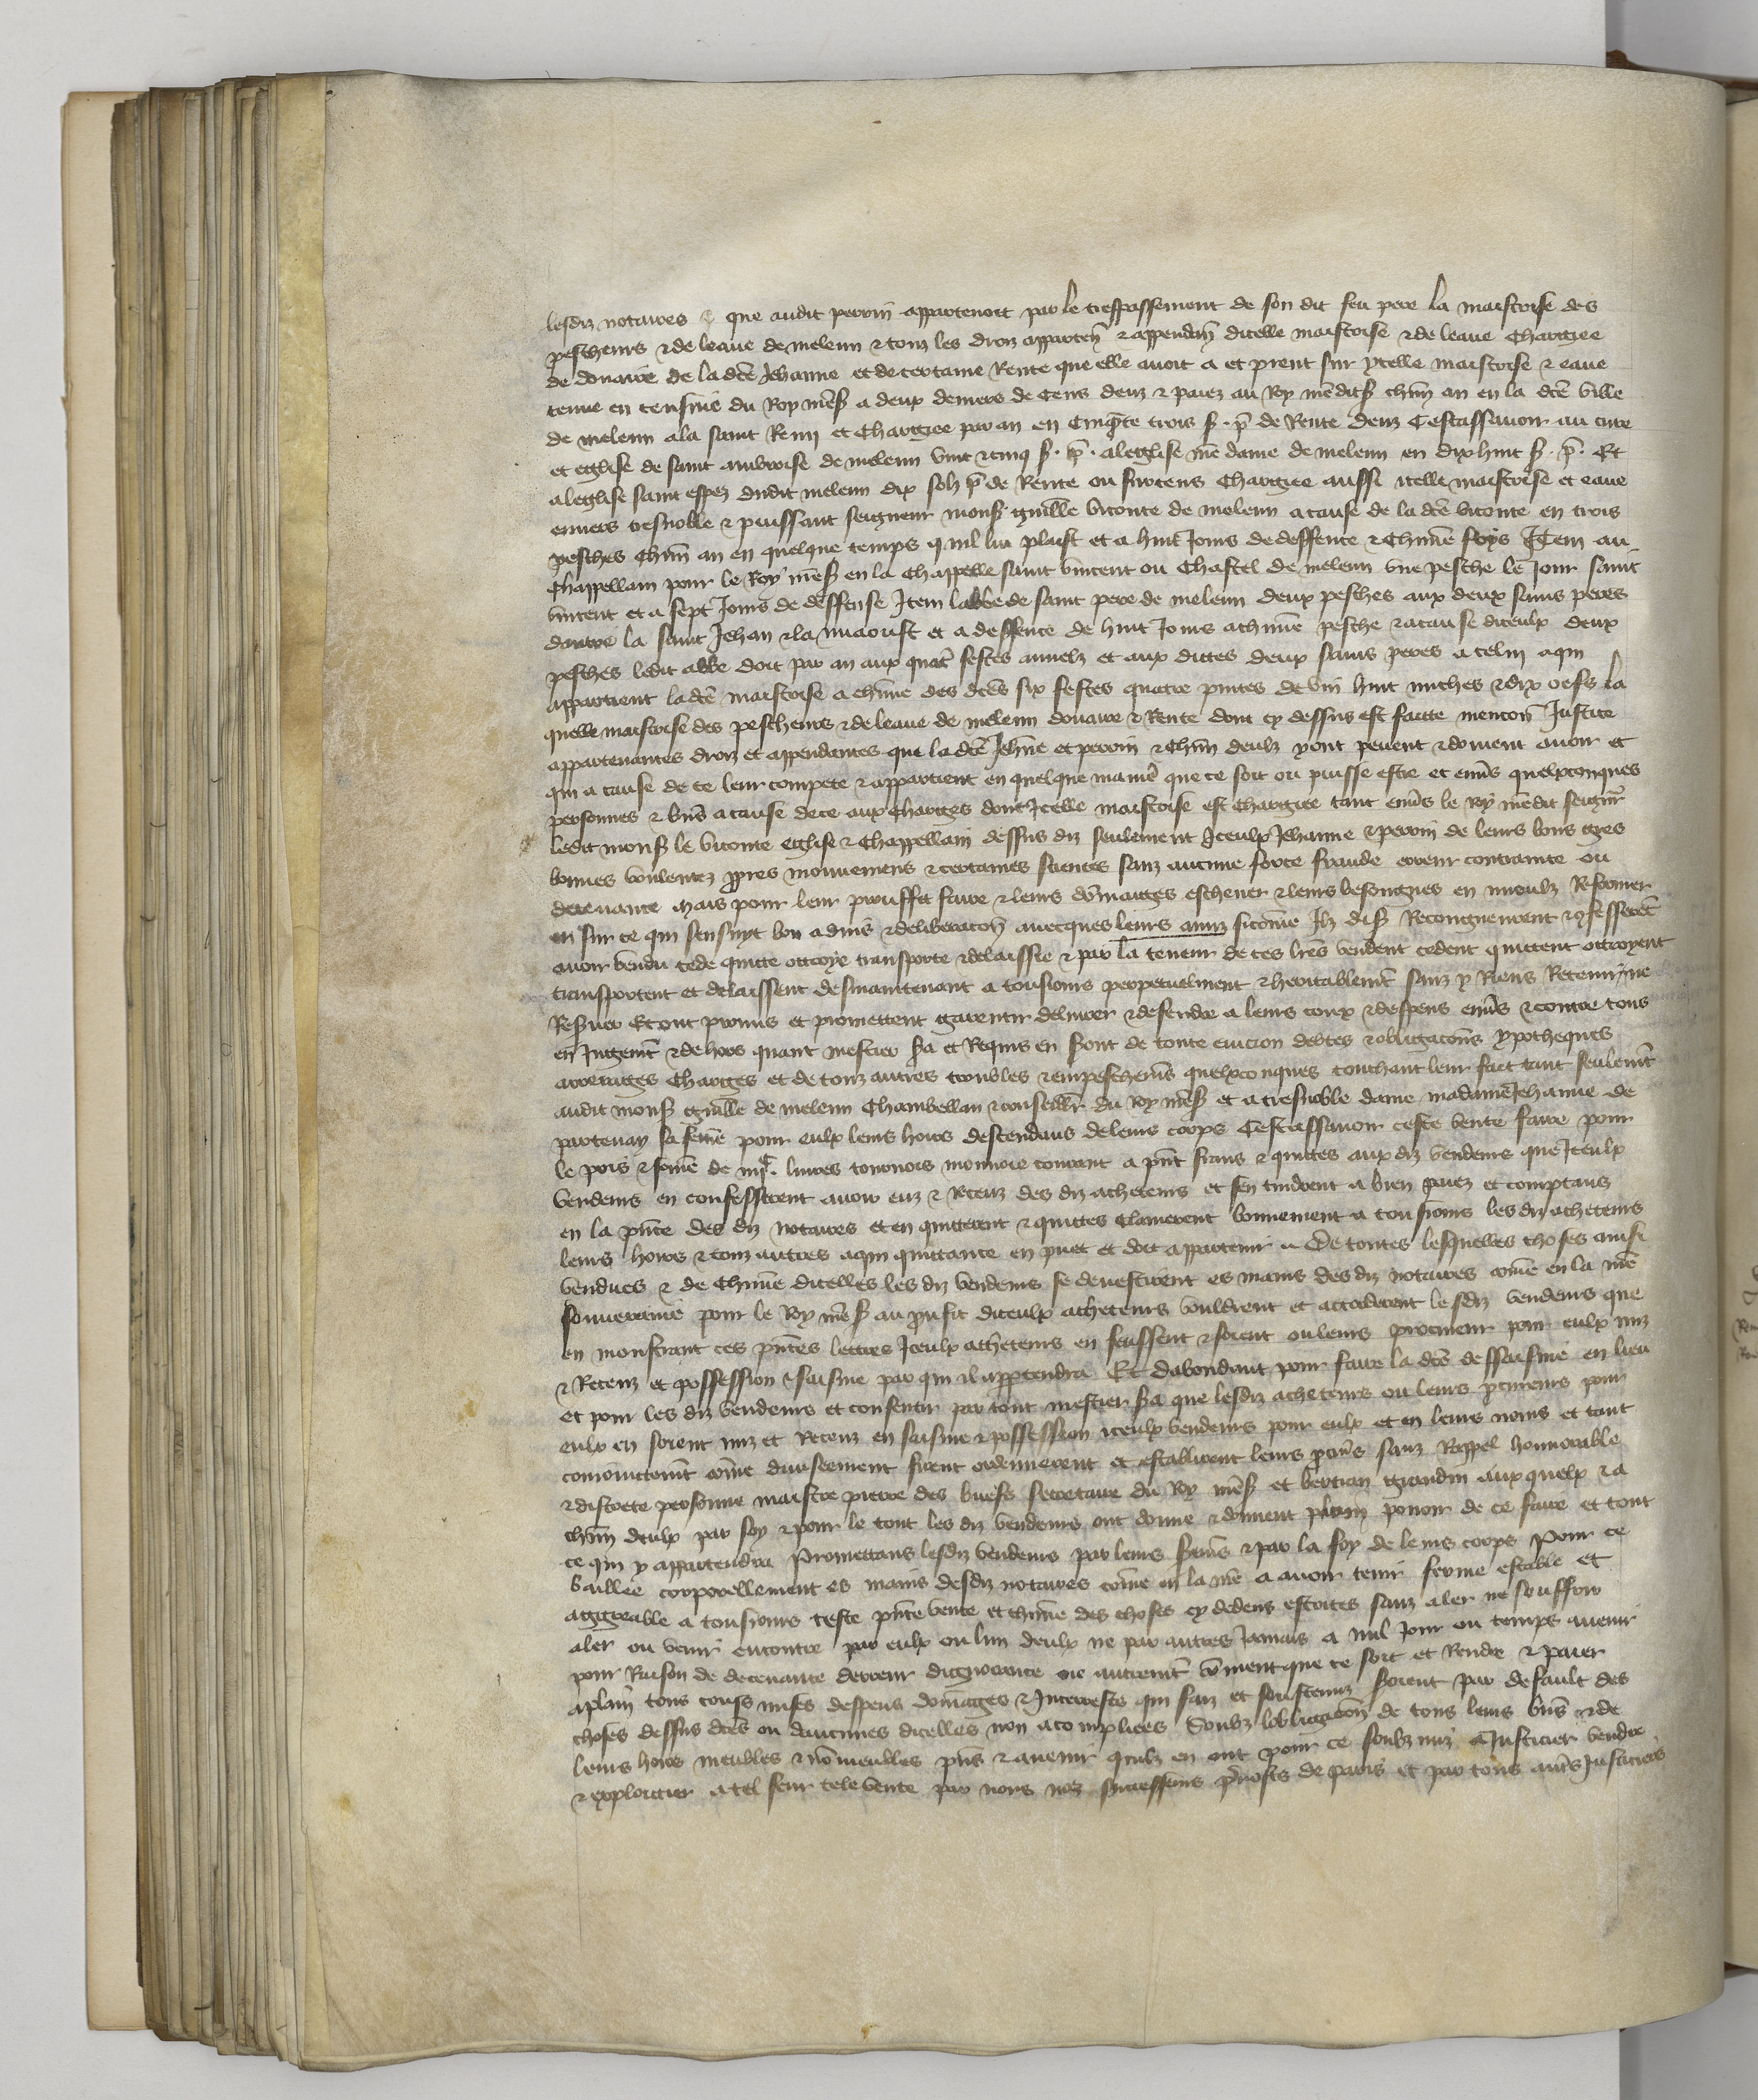 lesdiz notaires que audit perrin appartenoit par le trespassement de son dit feu pere la maistrise des
pescheurs & de leaue de meleun & touz les droiz apparten & appendan dicelle maistrise & de leaue chargee
de douaire de la dce Jehanne et de certaine Rente que elle avoit a et prent sur ycelle maistrise & eaue
tenue en censive du Roy mes a deux deniers de cens deuz & paiez au Roy mondits chun an en la dce ville
de meleun a la saint Remi et chargee par an en cinqte trois s. p de Rente deuz cestassavoir au cure
et eglise de saint ambroise de meleun vint & cinq s. p. a leglise nre dame de meleun en dix huit s. p. Et
a leglise saint espez dudit meleun dix solz p de Rente ou surcens chargee aussi icelle maistrise et eaue
envers tresnoble & puissant seigneur mons guille viconte de meleun a cause de la dce viconte en trois
pesches chun an en quelque temps quil lui plaist et a huit Jours de deffence & chune foys Item au
chappellain pour le Roy mes en la chappelle saint vincent ou chastel de meleun une pesche le Jour saint
vincent et a sept Jours de deffense Item labbe de saint pere de meleun deux pesches aux deux sains peres
dautre la saint Jehan & la miaoust et a deffence de huit Jours a chune pesche & a cause diceulx deux
pesches ledit abbe doit par an aux quatre festes annelz et aux dittes deux sains peres a celui a qui
appartient la dce maistrise a chune des dces six festes quatre pintes de vin huit miches & dix oefs la
quelle maistrise des pescheurs & de leaue de meleun douaire & Rente dont cy dessus est faitte mencon Justice
appartenances droiz et appendances que la dce Jehne et perrin & chun deulz y ont peuent & doivent avoir et
qui a cause de ce leur compete & appartient en quelque manie que ce soit ou puisse estre et envs quelxconques
personnes & biens a cause de ce aux charges dont Icelle maistrise est chargee tant envs le Roy nredit seigneur
ledit mons le viconte eglise & chappellain dessus diz seulement Iceulx Jehanne & perrin de leurs bons grez
bonnes voulentez ppres mouvemens & certaines sciences sanz aucune force fraude erreur contrainte ou
decevance mais pour leur prouffit faire & leurs domaiges eschever & leurs besongnes en mieulz Refformer
eu sur ce qui sensuyt bon advis & deliberacon avecques leurs amiz sicome Ilz dis Recongneurent & confesserent
avoir vendu cede quitte ottroye transporte & delaissie & par la teneur de ces lres vendent cedent quittent ottroyent
transportent et delaissent desmaintenant a tousiours perpetuelment & heritablemt sanz y Riens Retenir ne
Reserver Et ont promis et promettent garentir delivrer & defendre a leurs coux & despens envs & contre tous
en Jugemt & dehors quant mestier sa et Requis en sont de toute eviction debtes & obligacons ypotheques
arrerages charges et de touz autres troubles & empeschems quelxconques touchant leur fait tant seulemt
audit mons guille de meleun chambellan & conseillr du Roy mes et a tresnoble dame madame Jehanne de
partenay sa feme pour eulx leurs hoirs descendans de leurs corps cestassavoir ceste vente faire pour
le pris & some de livres tournois monnoie courant a pnt frans & quittes aux diz vendeurs que Iceulx
vendeurs en confesserent avoir euz & Receuz des diz acheteurs et sen tindrent a bien paiez et comptans
en la pnce des diz notaires et en quitterent & quittes clamerent bonnement a tousiours les diz acheteurs
leurs hoirs & touz autres a qui quittance en puet et doit appartenir De toutes lesquelles choses ainsi
vendues & de chune dicelles les diz vendeurs se devestirent es mains des diz notaires come en la nre
souveraine pour le Roy mes au prufit diceulx acheteurs vouldrent et accorderent lesdiz vendeurs que
en monstrant ces pntes lettres Iceulx acheteurs en feussent & soient ou leurs procureur pour eulx miz
& Receuz et possession & saisine par qui il apptendra Et dabondant pour faire la dce dessaisine en lieu
et pour les diz vendeurs et consentir par tout mestier sa que lesdiz acheteurs ou leurs pcureurs pour
eulx en soient miz et Receuz en saisine & possession iceulx vendeurs pour eulx et en leurs noms et tant
coniointemt come diviseement firent ordennerent et establirent leurs pcurs sanz Rappel honnorable
& discrete personne maistre pierre des buefs secretaire du Roy mes et bertran girardin aux quelx & a
chun deulx par soy & pour le tout les diz vendeurs ont donne & donnent plain povoir de ce faire et tout
ce qui y appartendra Promettans lesdiz vendeurs par leurs sermens & par la foy de leurs corps Pour ce
baillee corporellement es mains desdiz notaires come en la nre a avoir tenir ferme estable et
aggreable a tousiours ceste pnte vente et chune des choses cy dedens escrites sanz aler ne souffrir
aler ou venir encontre par eulx ou lun deulx ne par autres Jamais a nul Jour ou temps avenir
pour Raison de decevance derreur dignorance ne autremt coment que ce soit et Rendre & paier
a plain tous couss mises despens domages & Interrestz qui faiz et soustenuz seroient par default des
choses dessus dces ou daucunes dicelles non acomplies Soubz lobligacon de tous leurs biens & de
leurs hoirs meubles & non meubles pns & avenir quilz en ont pour ce soubz miz a Justicier vendre
& exploictier a tel feur tele vente par nous noz successeurs prevosts de paris et par tous autres Justiciers